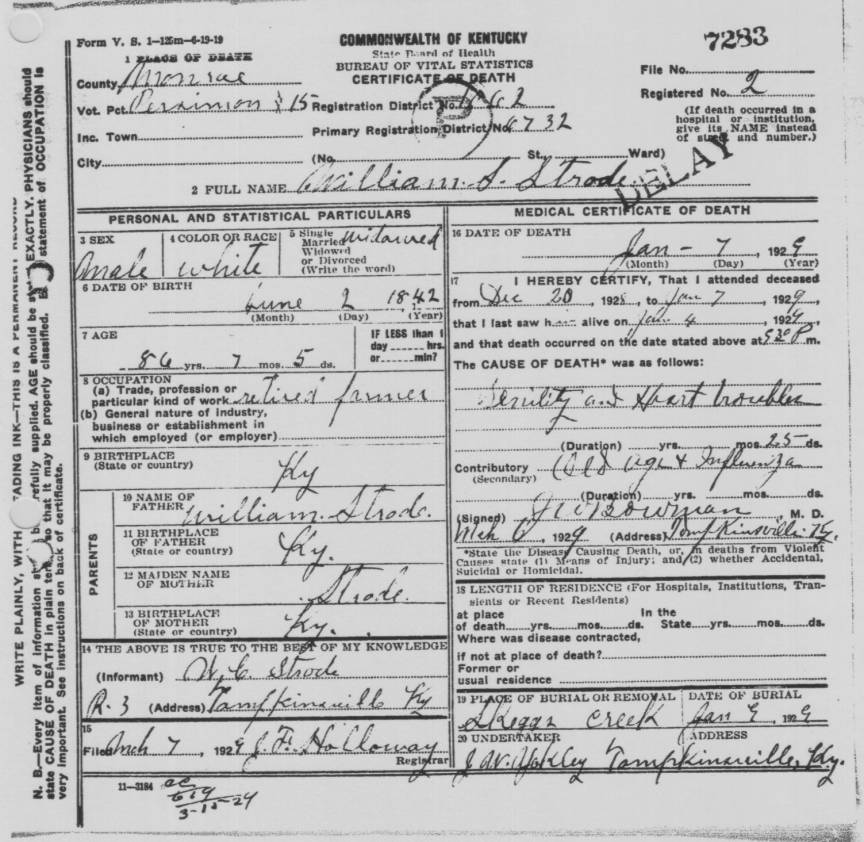 Form V. S. 1—125m—6-19-19
COMMONWEALTH OF KENTUCKY
State Board of Health
BUREAU OF VITAL STATISTICS
CERTIFICATE OF DEATH
7283
File No.
Registered No. 2
(If death occurred in a hospital or institution, give its NAME instead of street and number.)
1 PLACE OF DEATH
County Monroe
Vot. Pct. 15 Registration District No.
Inc. Town Primary Registration District No. 6732
City (No. St., Ward)
P
DELAY
2 FULL NAME William S. Strode
PERSONAL AND STATISTICAL PARTICULARS
3 SEX Male
4 COLOR OR RACE white
5 Single Married Widowed or Divorced (Write the word) widowed
6 DATE OF BIRTH
June 2 1842
(Month) (Day) (Year)
7 AGE
86 yrs. 7 mos. 5 ds.
IF LESS than 1 day hrs. or min?
8 OCCUPATION
(a) Trade, profession or particular kind of work retired farmer
(b) General nature of industry, business or establishment in which employed (or employer)
9 BIRTHPLACE
(State or country) Ky
PARENTS
10 NAME OF FATHER William Strode.
11 BIRTHPLACE OF FATHER
(State or country) Ky.
12 MAIDEN NAME OF MOTHER Strode.
13 BIRTHPLACE OF MOTHER
(State or country) Ky.
14 THE ABOVE IS TRUE TO THE BEST OF MY KNOWLEDGE
(Informant) W. C. Strode
R. 3 (Address) Tompkinsville Ky
15
Filed Mch 7, 1929 J. F. Holloway
Registrar
11—3184
3-15-29
MEDICAL CERTIFICATE OF DEATH
16 DATE OF DEATH
Jan - 7, 1929
(Month) (Day) (Year)
17 I HEREBY CERTIFY, That I attended deceased
from Dec 20, 1928, to Jan 7, 1929,
that I last saw him alive on Jan 4, 1929,
and that death occurred on the date stated above at 530 P m.
The CAUSE OF DEATH* was as follows:
Senility and Heart troubles
(Duration) yrs. mos. 25 ds.
Contributory Old age & Influenza
(Secondary)
(Duration) yrs. mos. ds.
(Signed) Bowman, M. D.
Mch 6, 1929 (Address) Tompkinsville Ky.
*State the Disease Causing Death, or, in deaths from Violent Causes state (1) Means of Injury; and (2) whether Accidental, Suicidal or Homicidal.
18 LENGTH OF RESIDENCE (For Hospitals, Institutions, Transients or Recent Residents)
at place of death yrs. mos. ds. In the State yrs. mos. ds.
Where was disease contracted,
if not at place of death?
Former or
usual residence
19 PLACE OF BURIAL OR REMOVAL
Skeggs Creek
DATE OF BURIAL
Jan 9, 1929
20 UNDERTAKER
J. W. Yokley
ADDRESS
Tompkinsville, Ky.
N. B.—Every item of information
state CAUSE OF DEATH in plain
very important. See instructions on back of certificate.